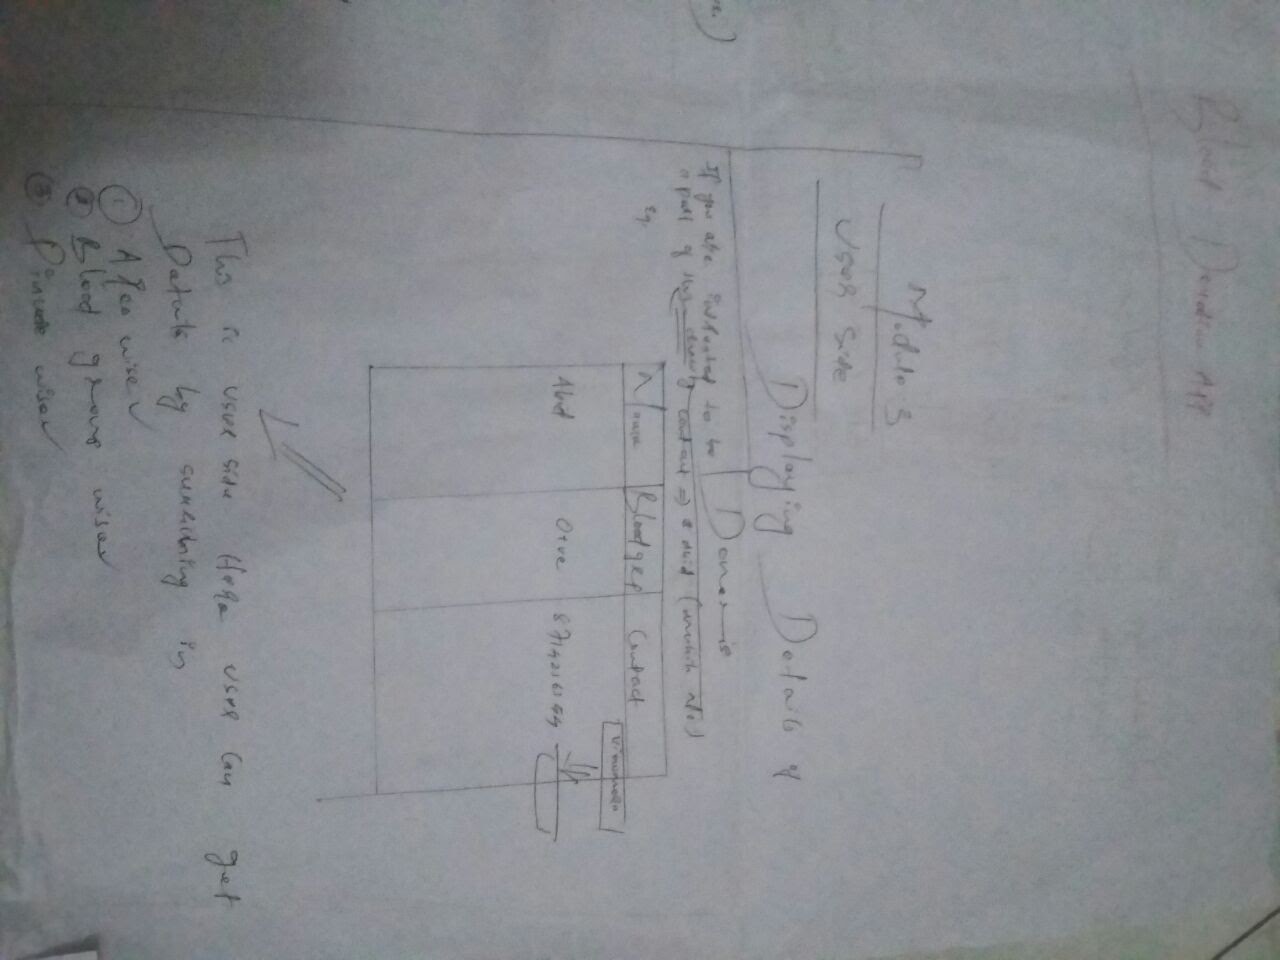 Blood Donation APP
Module 3
USER Side
Displaying Details of
Donor's
If you are interested to be
a part of this contact => admin
eg.
Name Bloodgrp Contact
View more
Abd O+ve
This is user side. Here user can get
Details by searching in
① Area wise
② Blood group wise
③ Pincode wise